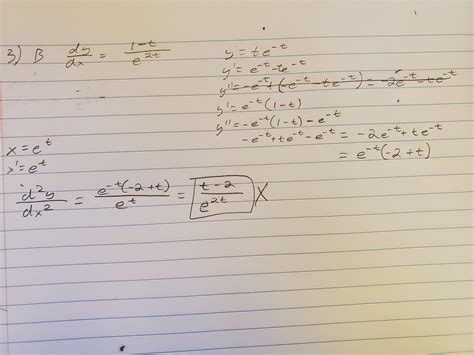 3) B dy/dx = 1-t/e^2t
y = te^-t
y' = e^-t - te^-t
y'' = -e^-t + (-e^-t - te^-t) = -2e^-t - te^-t
y' = e^-t(1-t)
y'' = -e^-t(1-t) - e^-t
-e^-t + te^-t - e^-t = -2e^-t + te^-t
= e^-t(-2+t)
x = e^t
x' = e^t
d^2y/dx^2 = e^-t(-2+t)/e^t = t-2/e^2t X